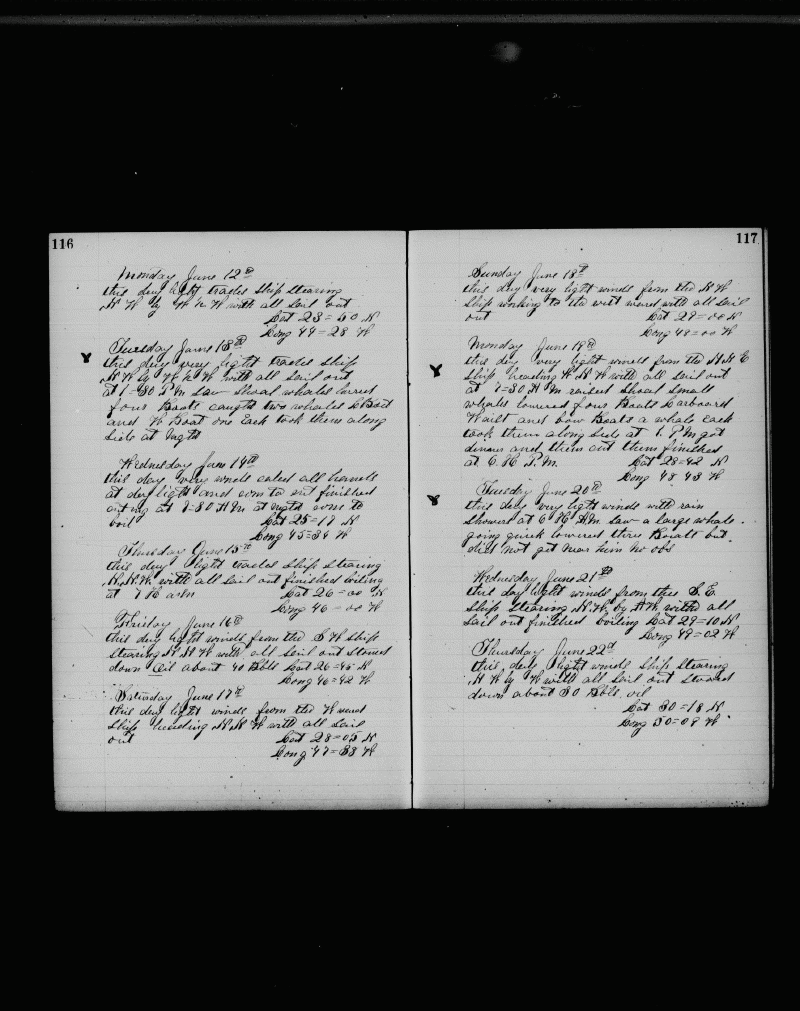 116
Monday June 12th
this day light trades Ship Stearing
N W by W & W with all Sail out
Lat 23=50 N
Long 44=28 W
Tuesday June 13th
this day very light trades Ship
N W by W & W with all Sail out
at 1-30 P M Saw Shoal whales lowered
four Boats caught two whales L Boat
and W Boat one Each took them along
Side at Night
Wednesday June 14th
this day very winds called all hands
at day light and com to cut finished
cutting at 9=30 A M at night com to
boil Lat 25=17 N
Long 45=34 W
Thursday June 15th
this day light trades Ship Stearing
N.N.W. with all Sail out finished boiling
at 7 H a.m Lat 26=00 N
Long 46=00 W
Friday June 16th
this day light winds from the S W Ship
Stearing N N W with all Sail out Stowed
down Oil about 40 Bbls Lat 26=45 N
Long 46=42 W
Saturday June 17th
this day light winds from the W ward
Ship heading N N W with all Sail
out Lat 28=05 N
Long 47=33 W
117
Sunday June 18th
this day very light winds from the N W
Ship working to the west ward with all Sail
out Lat 29=00 N
Long 48=00 W
Monday June 19th
this day very light winds from the N N E
Ship heading W N W with all Sail out
at 7=30 A M raised Shoal Small
whales lowered four Boats Larboard
Waist and bow Boats a whale each
took them along Side at 1. P M got
dinner and then cut them finished
at 6. H P. M. Lat 28=42 N
Long 48 43 W
Tuesday June 20th
this day very light winds with rain
Showers at 6 H A.M. Saw a large whale
going quick lowered three Boats but
did not get near him no obs
Wednesday June 21st
this day light winds from the S. E.
Ship Stearing N.W. by W with all
Sail out finished boiling Lat 29=10 N
Long 49=02 W
Thursday June 22d
this day light winds Ship Stearing
N W by W with all Sail out Stowed
down about 30 Bbls oil
Lat 30=18 N
Long 50=09 W